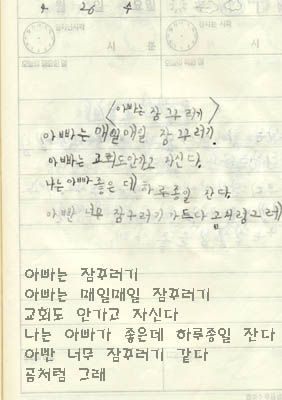 4 26 4 요일
시 분
시 분
<아빠는 잠꾸러기>
아빠는 매일매일 잠꾸러기.
아빠는 교회도안가고 자신다.
나는아빠좋은데 하루종일 잔다.
아빤 너무 잠꾸러기 가튼다 곰처럼그래
아빠는 잠꾸러기
아빠는 매일매일 잠꾸러기
교회도 안가고 자신다
나는 아빠가 좋은데 하루종일 잔다
아빤 너무 잠꾸러기 같다
곰처럼 그래